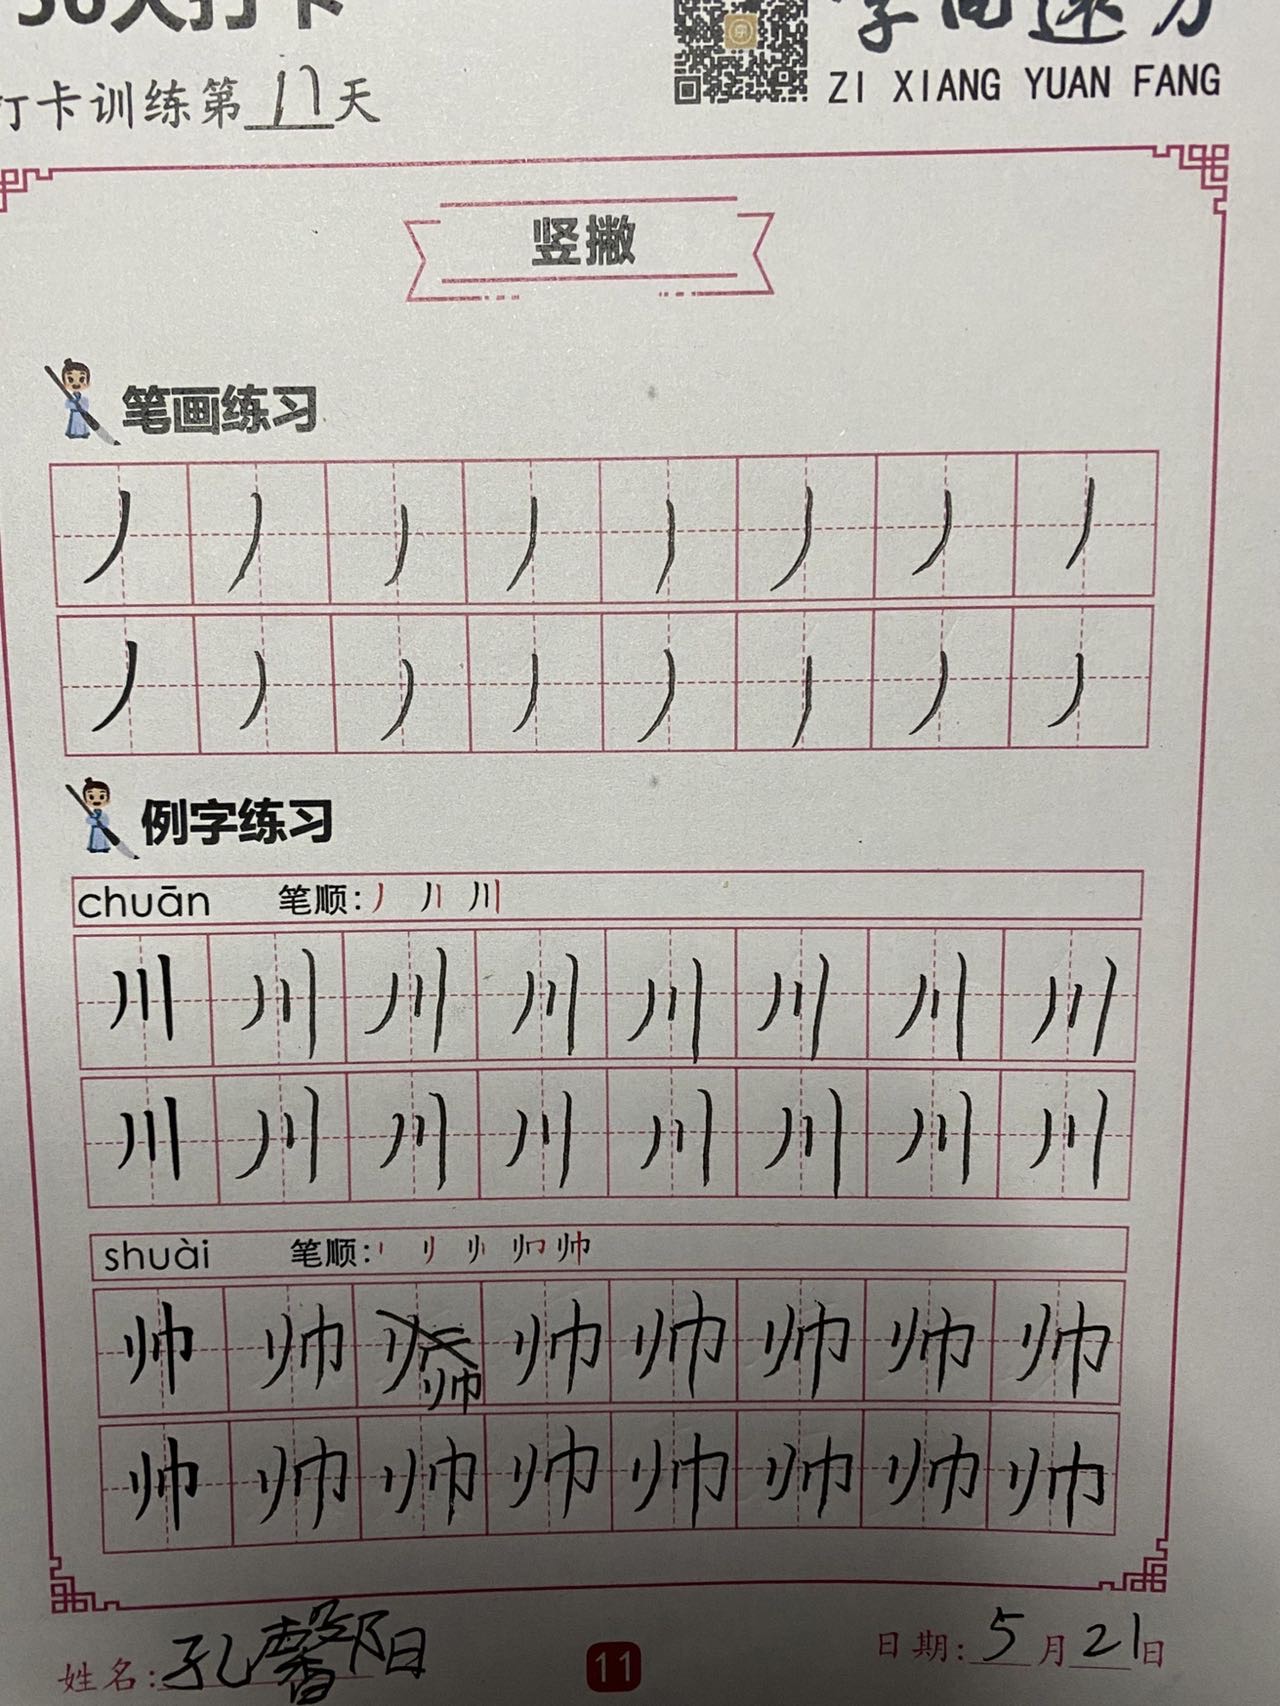 30天打卡
字向远方
打卡训练第11天
ZI XIANG YUAN FANG
竖撇
笔画练习
丿丿丿丿丿丿丿丿
丿丿丿丿丿丿丿丿
例字练习
chuān 笔顺: 丿 丿丨 川
川川川川川川川川
川川川川川川川川
shuài 笔顺: 帅
帅帅帅帅帅帅帅帅
帅帅帅帅帅帅帅帅
姓名: 孔馨阳
11
日期: 5月21日